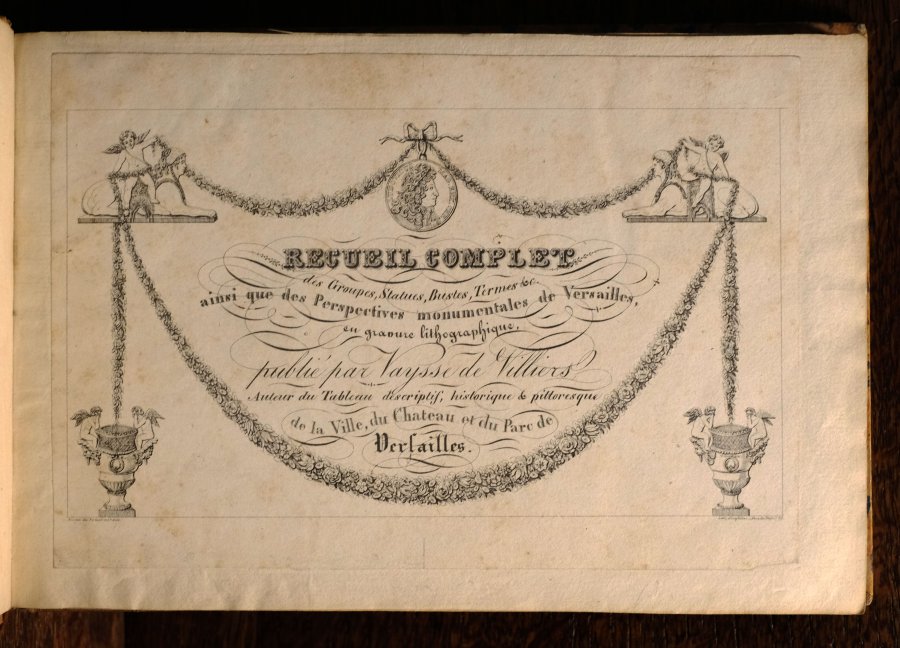 RECUEIL COMPLET
des Groupes, Statues, Bustes, Termes &c.
ainsi que des Perspectives monumentales de Versailles,
en gravure lithographique,
publié par Vaysse de Villiers
Auteur du Tableau descriptif, historique & pittoresque
de la Ville, du Chateau et du Parc de
Versailles.